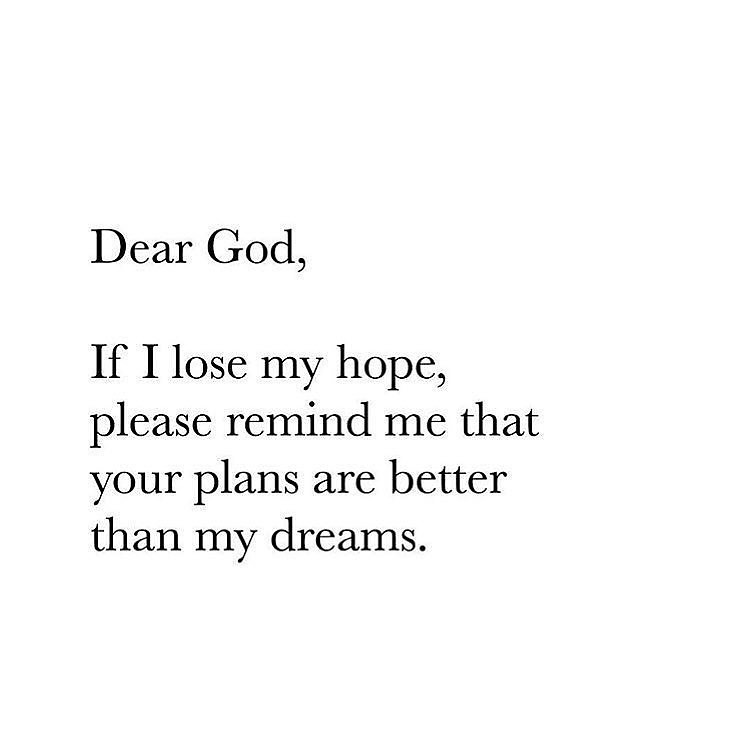 Dear God,
If I lose my hope,
please remind me that
your plans are better
than my dreams.